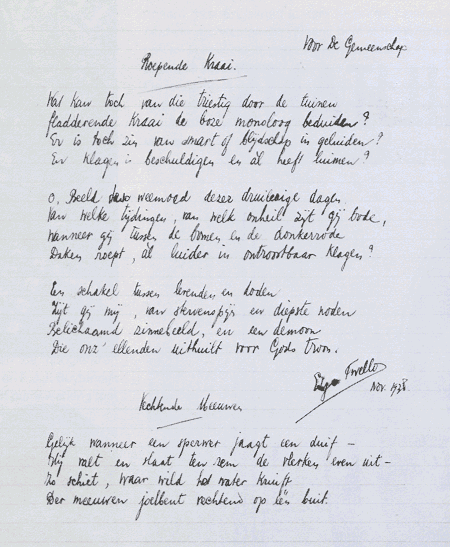 Voor De Gemeenschap
Roepende Kraai.
Wat kan toch van die triestig door de tuinen
fladderende Kraai de boze monoloog beduiden?
Er is toch zin van smart of blijdschap in geluiden?
En klagen is beschuldigen en al heeft luimen?
O, Beeld van weemoed dezer druilerige dagen,
Van welke tijdingen, van welk onheil zijt gij bode,
wanneer gij tussen de bomen en de donkerrode
Daken roept, al luider in ontroostbaar klagen?
Een schakel tussen levenden en doden
Zijt gij mij, van stervenspijn en diepste noden
Belichaamd zinnebeeld, en een demoon
Die onz' ellenden uithuilt voor Gods troon.
Twello
Nov. 1938
Vechtende Meeuwen
Gelijk wanneer een sperwer jaagt een duif –
Hij valt en slaat ten rem de vlerken even uit –
Zo schiet, waar wild het water kruift
Der meeuwen joelbent vechtend op één buit.